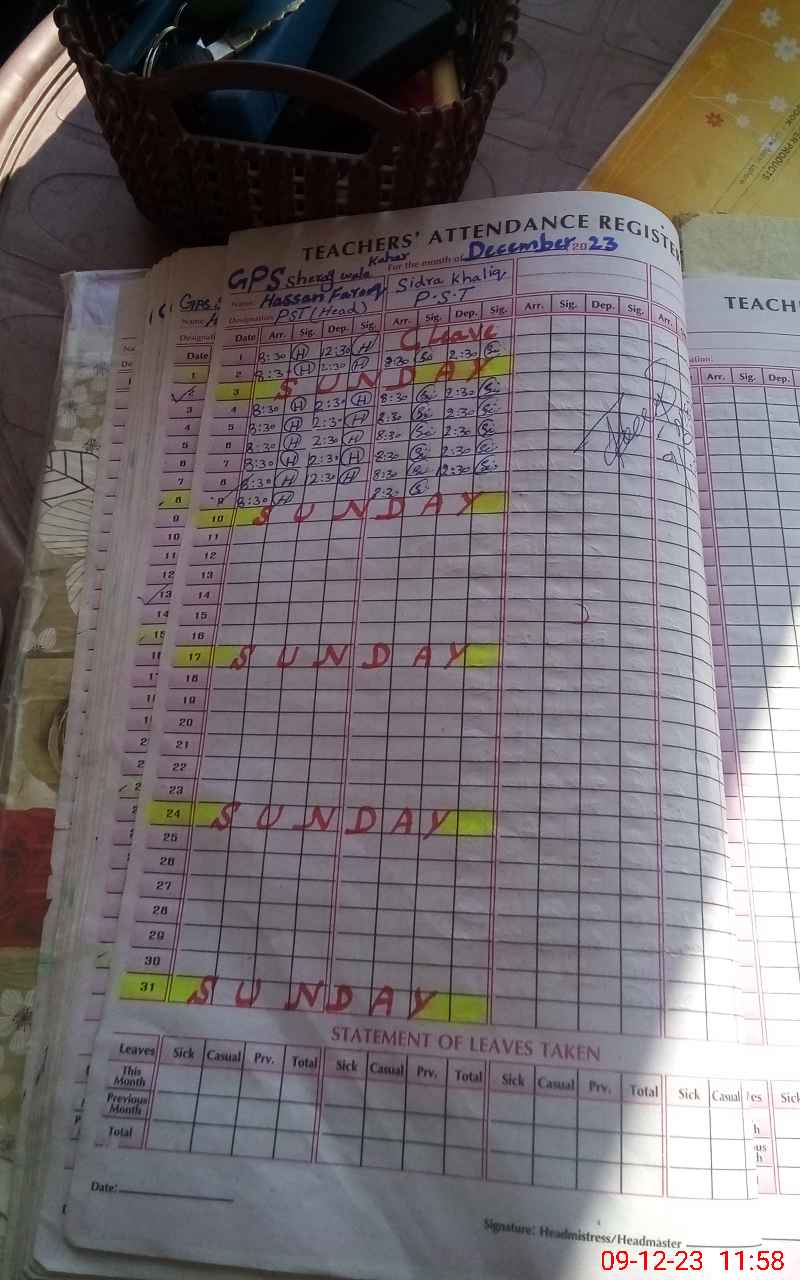 TEACHERS' ATTENDANCE REGISTE
For the month of December 2023
GPS sheraj wala Kahar
Name: Hassan Farooq Sidra Khaliq
Designation: PST (Head) P.S.T
Date Arr. Sig. Dep. Sig. Arr. Sig. Dep. Sig. Arr. Sig. Dep. Sig. Arr.
1 8:30 H 12:30 H C leave
2 8:30 H 2:30 H 8:30 2:30
3 SUNDAY
4 8:30 H 2:30 H 8:30 2:30
5 8:30 H 2:30 H 8:30 2:30
6 8:30 H 2:30 H 8:30 2:30
7 8:30 H 2:30 H 8:30 2:30
8 8:30 H 12:30 H 8:30 12:30
9 8:30 H 8:30
10 SUNDAY
11
12
13
14
15
16
17 SUNDAY
18
19
20
21
22
23
24 SUNDAY
25
26
27
28
29
30
31 SUNDAY
STATEMENT OF LEAVES TAKEN
Leaves Sick Casual Prv. Total Sick Casual Prv. Total Sick Casual Prv. Total Sick Casual
This Month
Previous Month
Total
Date:
Signature: Headmistress/Headmaster
TEACH
Arr. Sig. Dep.
GPS
Name
Date
1
2
3
4
5
6
7
8
9
10
11
12
13
14
15
ER PRODUCTS
09-12-23 11:58